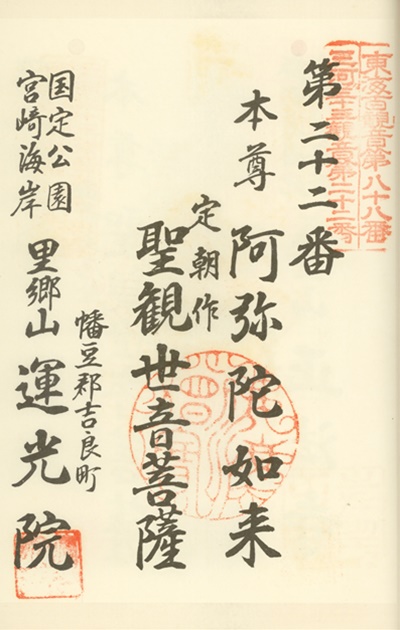 東海百観音第八十八番
三河三十三観音第二十二番
第二十二番
本尊 阿弥陀如来
定朝作
聖観世音菩薩
国定公園
宮崎海岸
幡豆郡吉良町
里郷山 運光院